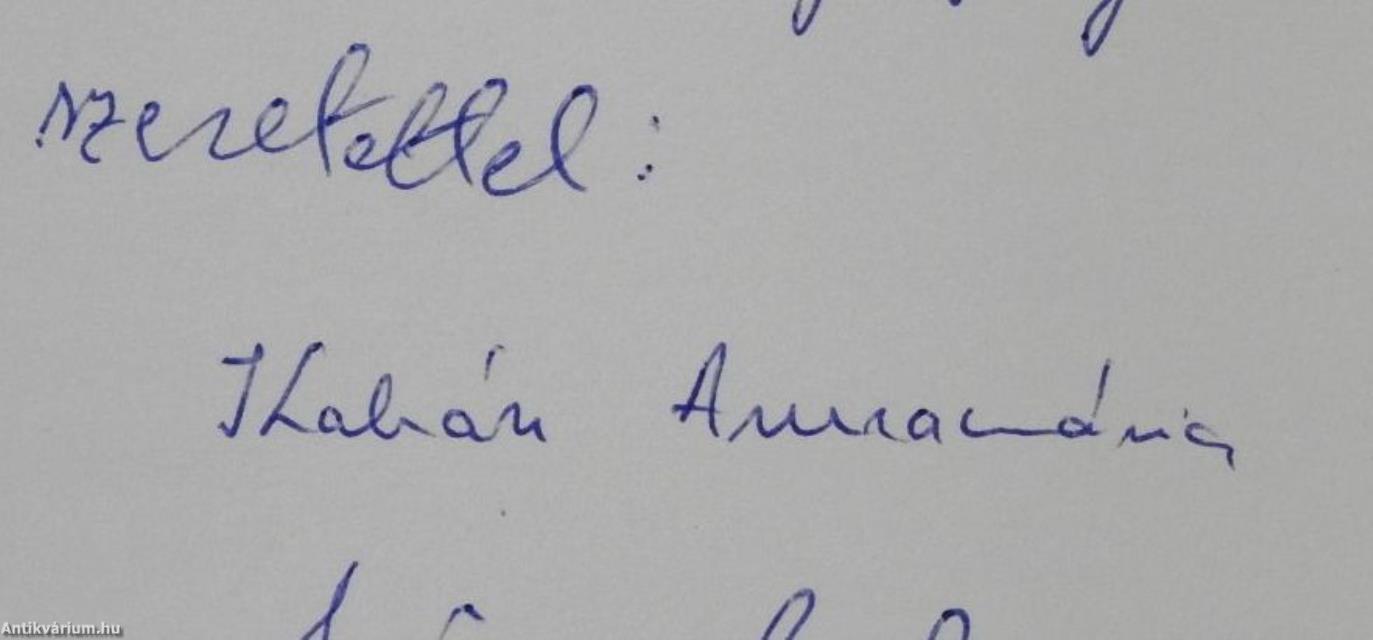 szeretettel:
Kabán Annamária
Antikvárium.hu